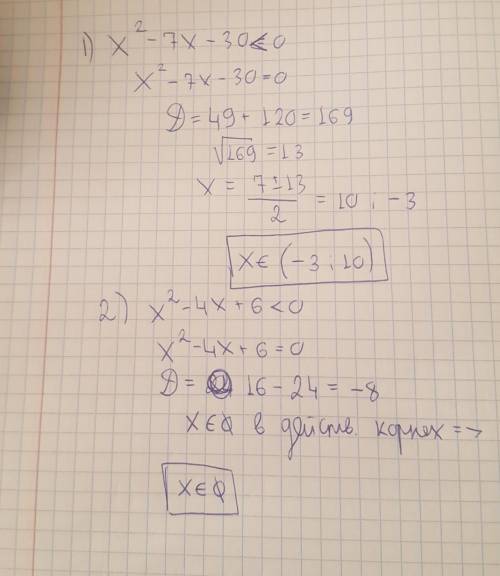 1) x² - 7x - 30 < 0
x² - 7x - 30 = 0
D = 49 + 120 = 169
√169 = 13
x = (7 ± 13)/2 = 10 ; -3
x ∈ (-3 ; 10)
2) x² - 4x + 6 < 0
x² - 4x + 6 = 0
D = 16 - 24 = -8
x ∈ ∅ в действ. корнех =>
x ∈ ∅